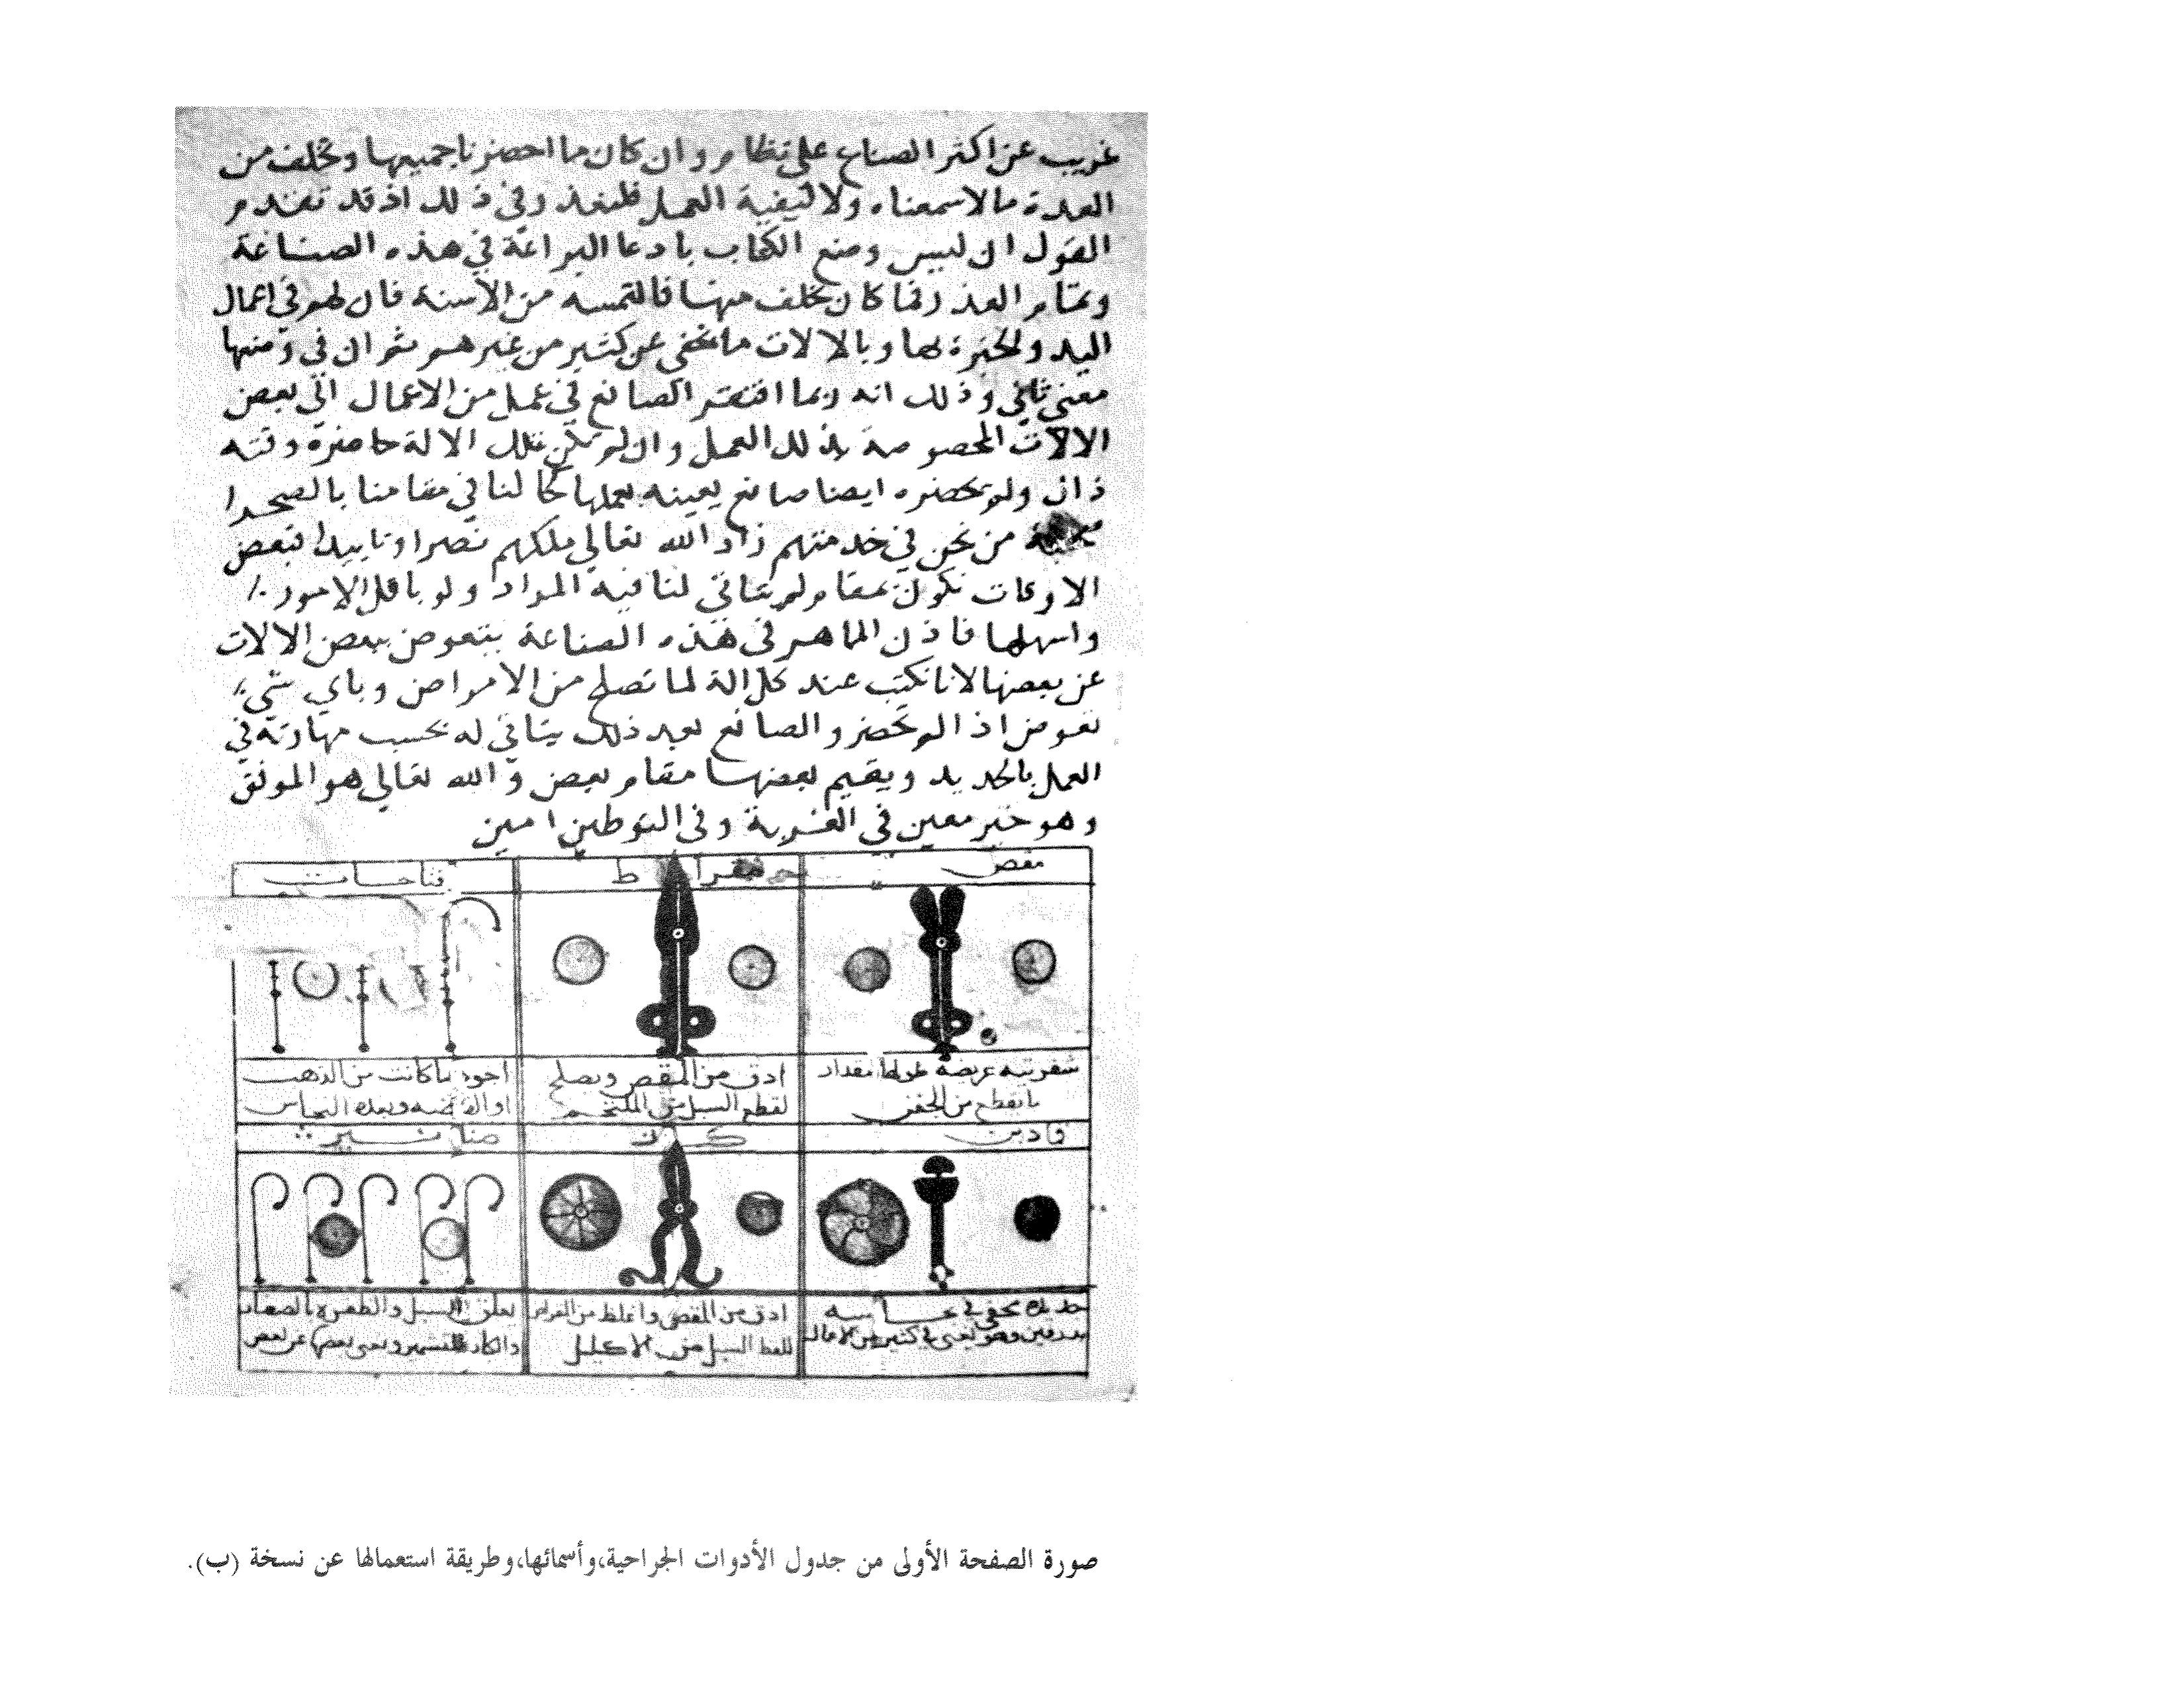 غريب عن اكثر الصناع على تطا مر وان كان ما احضرنا جميعها وتخلف من
العدة مالا سمعناه ولا كيفية العمل فليعذر في ذلك اذ قد تقدم
القول ان ليس وضع الكتاب بادعا البراعة في هذه الصناعة
وتمام العذر فما كان تخلف منها فالتمسه من الاسنة فان لهم في اعمال
اليد والخبرة بها وبالالات ما تخفي عن كثير من غيرهم ثم ان في وضعها
معنى ثاني وذلك انه ربما افتقر الصانع في عمل من الاعمال الي بعض
الالات المخصوصة بذلك العمل وان لم تكن تلك الالة حاضرة وقته
ذان ولم تحضره ايضا صانع يعينه بعملها كما لنا في مقامنا بالصحرا
من نحن في خدمتهم زاد الله تعالي ملكهم نصرا وتاييدا لبعض
الاوقات نكون بمقام لم يتاتي لنا فيه المراد ولو باقل الامور
واسهلها فاذن الماهر في هذه الصناعة يتعوض ببعض الالات
عن بعضها لانا نكتب عند كل الة لما تصلح من الامراض وباي شي
تعوض اذا لم تحضر والصانع بعد ذلك يتاتي له بحسب مهارته في
العمل بالحديد ويقيم بعضها مقام بعض والله تعالي هو الموفق
وهو خير معين في الغربة وفي التوطين امين
مقص
مقراط
فتاحات
شفرتيه عريضة طولها مقدار
ما تقطع من الجفن
ادق من المقص ويصلح
لقطع السبل من الملتحم
اجود ما كانت من الذهب
او الفضة وبعده النحاس
فادين
كاز
صنانير
ادق من المقص واغلظ من المقراض
للقط السبل من الاكليل
يعلق السبل والظفرة بالصغار
والكبار للتشمير وبعض عن بعض
صورة الصفحة الأولى من جدول الأدوات الجراحية،وأسمائها،وطريقة استعمالها عن نسخة (ب).